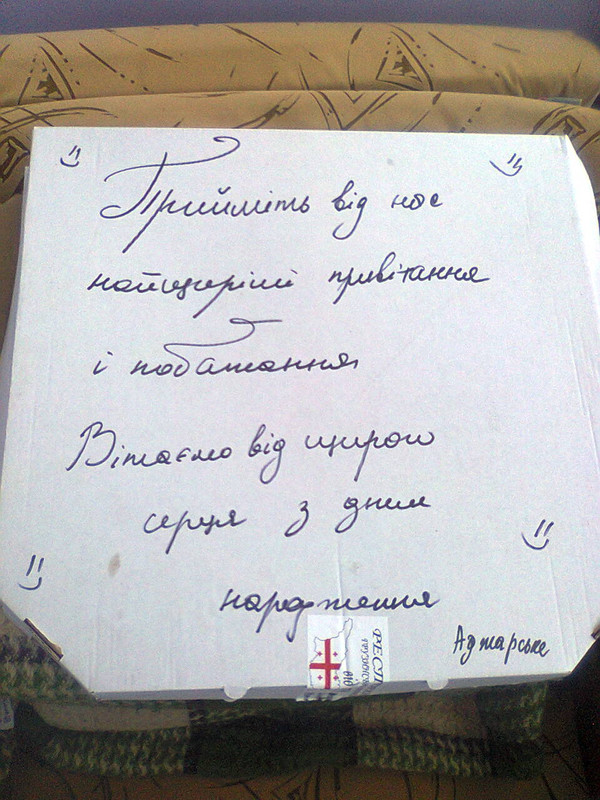 Прийміть від нас
найщиріші привітання
і побажання
Вітаємо від щирого
серця з днем
народження
Аджарське
РЕСТ